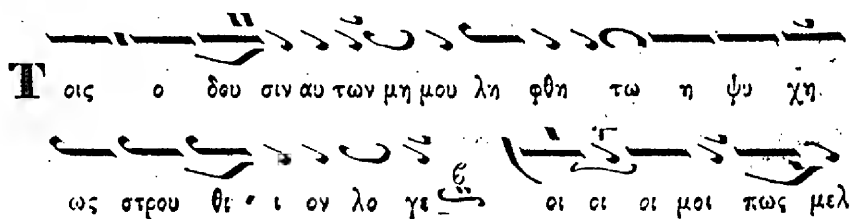 Τοις ο δου σιν αυ των μη μου λη φθη τω η ψυ χη.
ως στρου θι ι ον λο γε οι οι οι μοι πως μελ